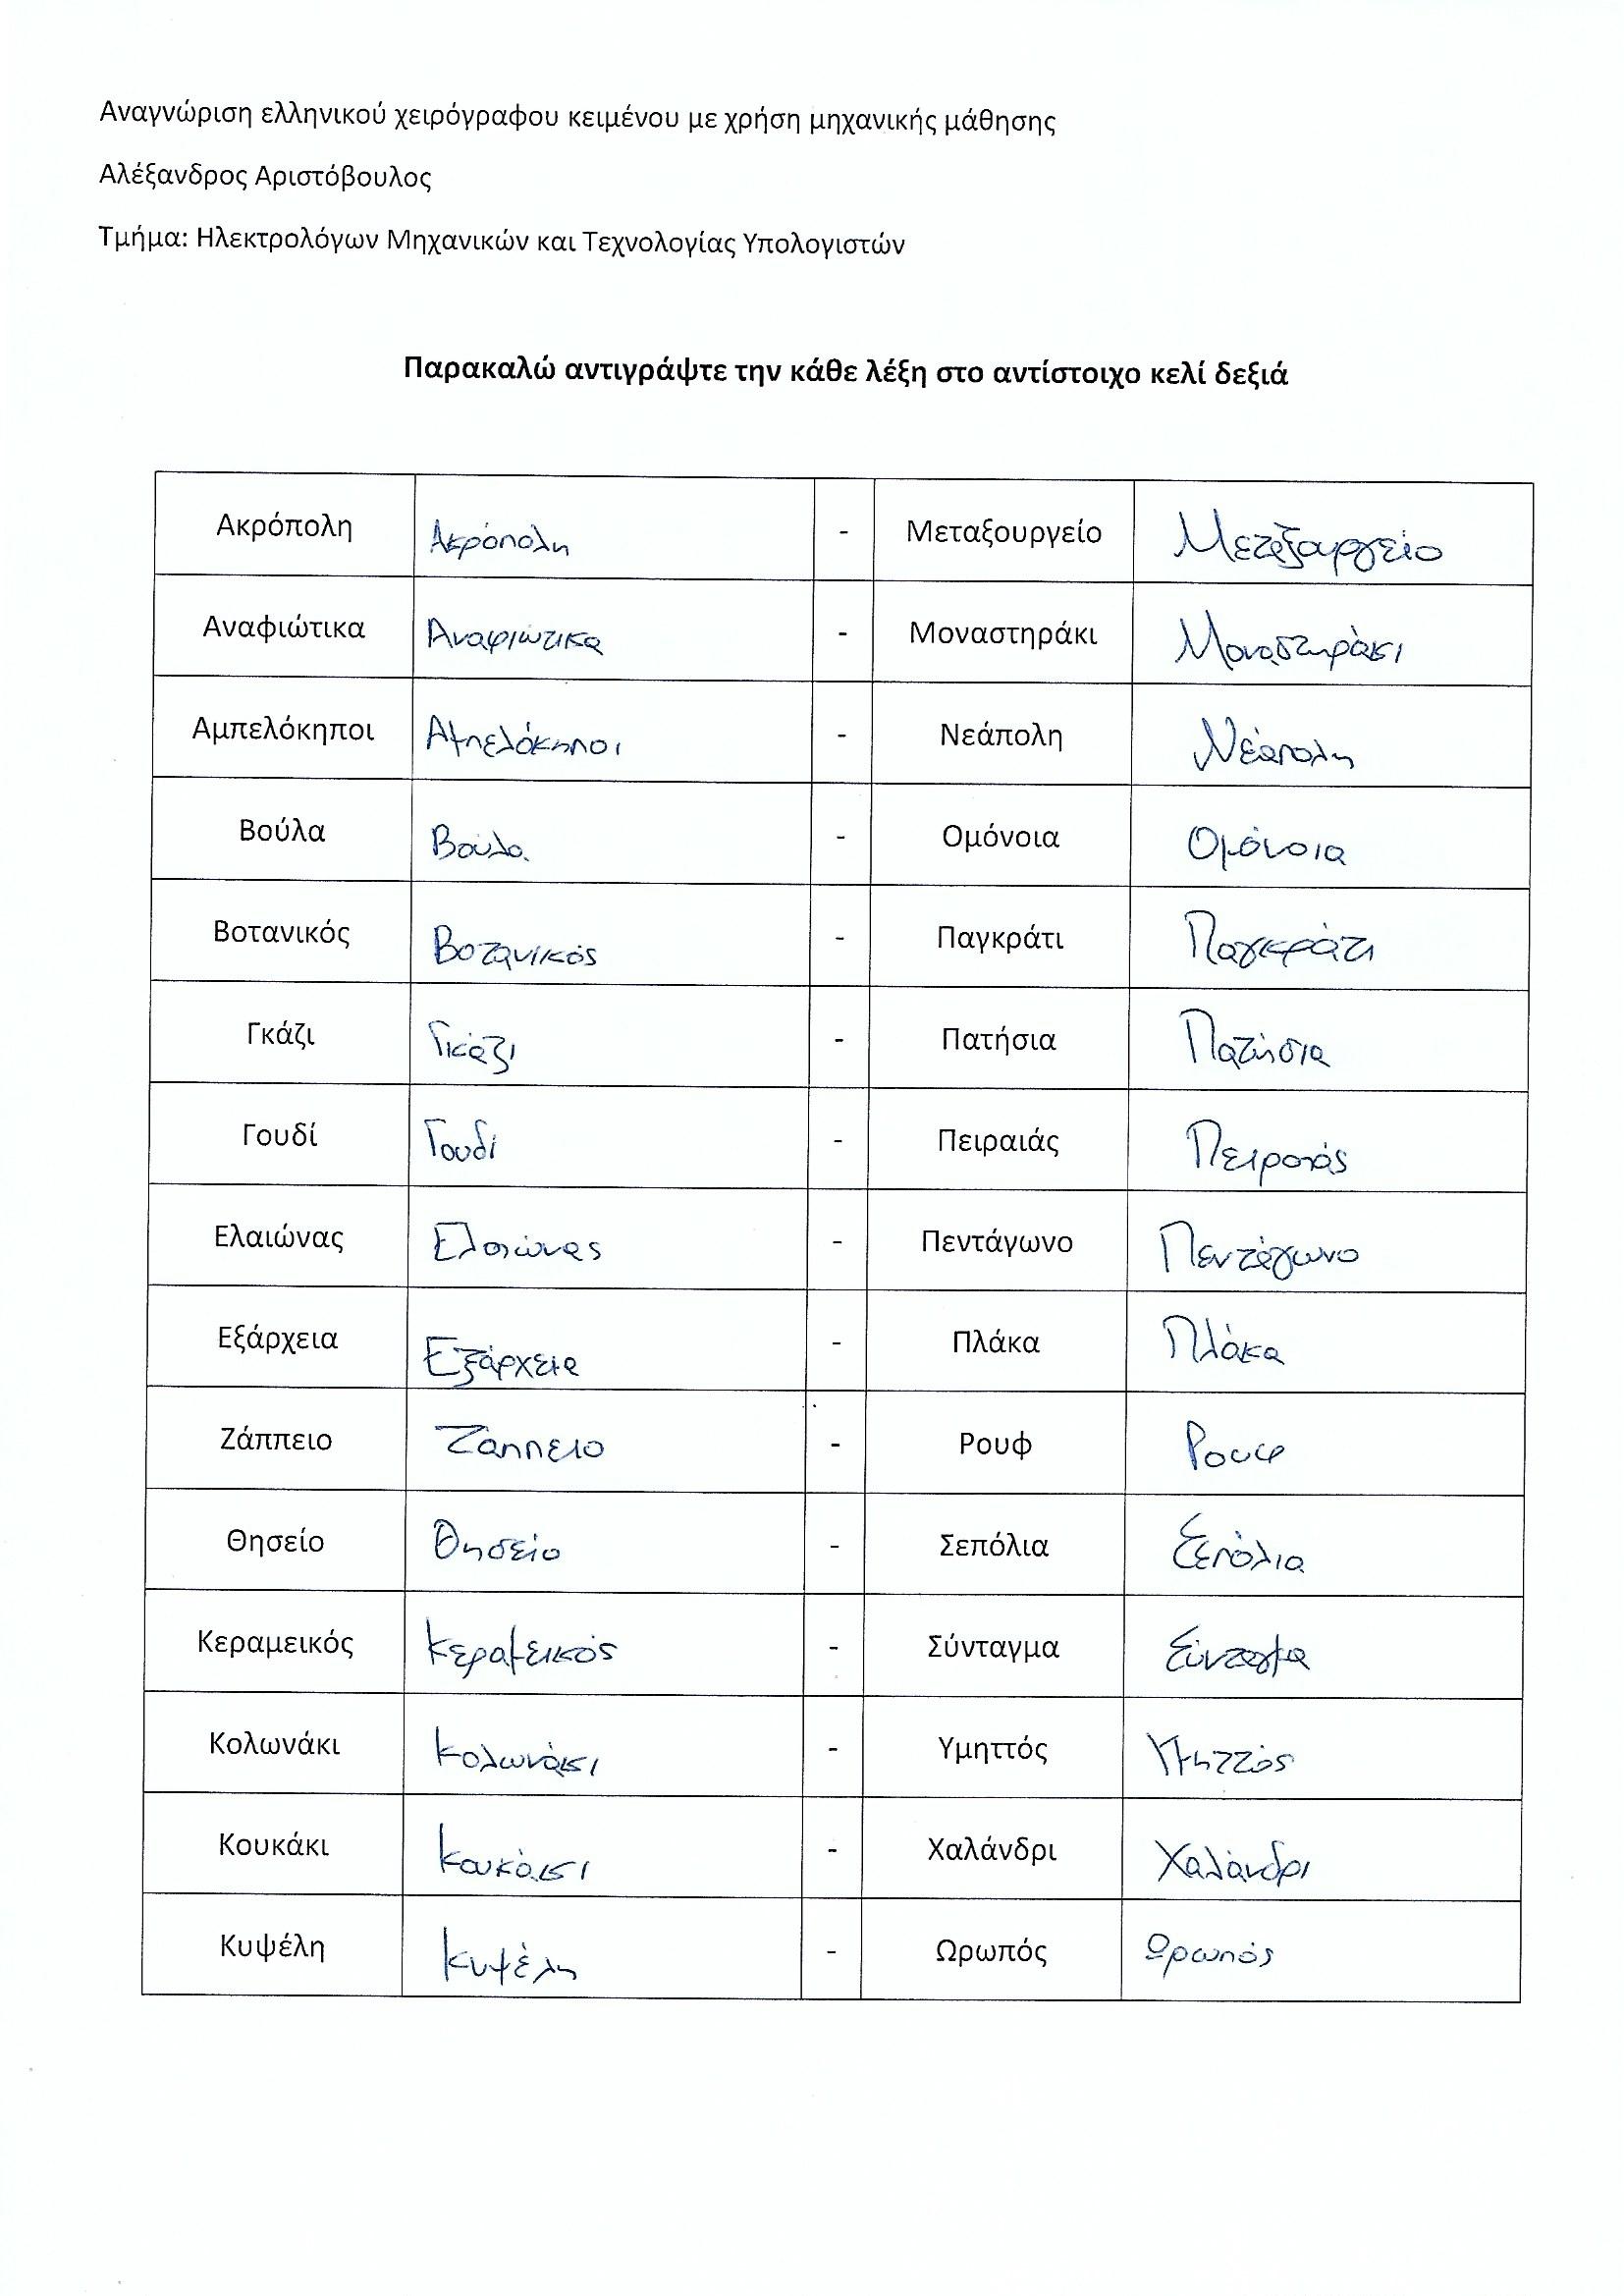 Αναγνώριση ελληνικού χειρόγραφου κειμένου με χρήση μηχανικής μάθησης
Αλέξανδρος Αριστόβουλος
Τμήμα: Ηλεκτρολόγων Μηχανικών και Τεχνολογίας Υπολογιστών
Παρακαλώ αντιγράψτε την κάθε λέξη στο αντίστοιχο κελί δεξιά
Ακρόπολη Ακρόπολη - Μεταξουργείο Μεταξουργείο
Αναφιώτικα Αναφιώτικα - Μοναστηράκι Μοναστηράκι
Αμπελόκηποι Αμπελόκηποι - Νεάπολη Νέαπολη
Βούλα Βούλα - Ομόνοια Ομόνοια
Βοτανικός Βοτανικός - Παγκράτι Παγκράτι
Γκάζι Γκάζι - Πατήσια Πατήσια
Γουδί Γουδί - Πειραιάς Πειραιάς
Ελαιώνας Ελαιώνας - Πεντάγωνο Πεντάγωνο
Εξάρχεια Εξάρχεια - Πλάκα Πλάκα
Ζάππειο Ζάππειο - Ρουφ Ρουφ
Θησείο Θησείο - Σεπόλια Σεπόλια
Κεραμεικός Κεραμεικός - Σύνταγμα Σύνταγμα
Κολωνάκι Κολωνάκι - Υμηττός Υμηττός
Κουκάκι Κουκάκι - Χαλάνδρι Χαλάνδρι
Κυψέλη Κυψέλη - Ωρωπός Ωρωπός